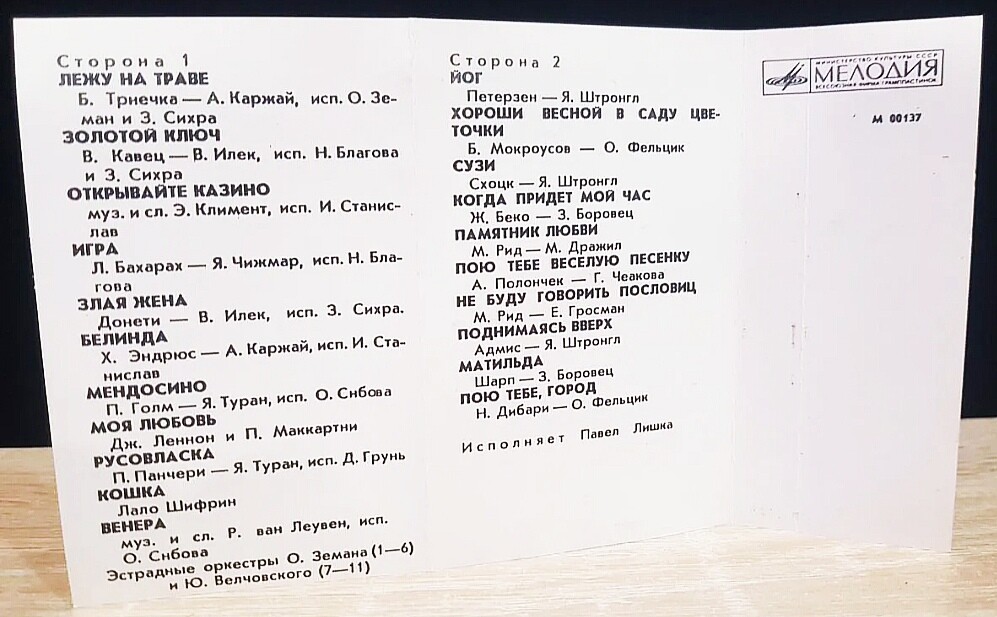 Сторона 1
ЛЕЖУ НА ТРАВЕ
Б. Трнечка — А. Каржай, исп. О. Зе-
ман и З. Сихра
ЗОЛОТОЙ КЛЮЧ
В. Кавец — В. Илек, исп. Н. Благова
и З. Сихра
ОТКРЫВАЙТЕ КАЗИНО
муз. и сл. Э. Климент, исп. И. Станис-
лав
ИГРА
Л. Бахарах — Я. Чижмар, исп. Н. Бла-
гова
ЗЛАЯ ЖЕНА
Донети — В. Илек, исп. З. Сихра.
БЕЛИНДА
Х. Эндрюс — А. Каржай, исп. И. Ста-
нислав
МЕНДОСИНО
П. Голм — Я. Туран, исп. О. Снбова
МОЯ ЛЮБОВЬ
Дж. Леннон и П. Маккартни
РУСОВЛАСКА
П. Панчери — Я. Туран, исп. Д. Грунь
КОШКА
Лало Шифрин
ВЕНЕРА
муз. и сл. Р. ван Леувен, исп.
О. Снбова
Эстрадные оркестры О. Земана (1—6)
и Ю. Велчовского (7—11)
Сторона 2
ЙОГ
Петерзен — Я. Штронгл
ХОРОШИ ВЕСНОЙ В САДУ ЦВЕ-
ТОЧКИ
Б. Мокроусов — О. Фельцик
СУЗИ
Схоцк — Я. Штронгл
КОГДА ПРИДЕТ МОЙ ЧАС
Ж. Беко — З. Боровец
ПАМЯТНИК ЛЮБВИ
М. Рид — М. Дражил
ПОЮ ТЕБЕ ВЕСЕЛУЮ ПЕСЕНКУ
А. Полончек — Г. Чеакова
НЕ БУДУ ГОВОРИТЬ ПОСЛОВИЦ
М. Рид — Е. Гросман
ПОДНИМАЯСЬ ВВЕРХ
Адмис — Я. Штронгл
МАТИЛЬДА
Шарп — З. Боровец
ПОЮ ТЕБЕ, ГОРОД
Н. Дибари — О. Фельцик
Исполняет Павел Лишка
МИНИСТЕРСТВО КУЛЬТУРЫ СССР
МЕЛОДИЯ
ВСЕСОЮЗНАЯ ФИРМА ГРАМПЛАСТИНОК
М 00137